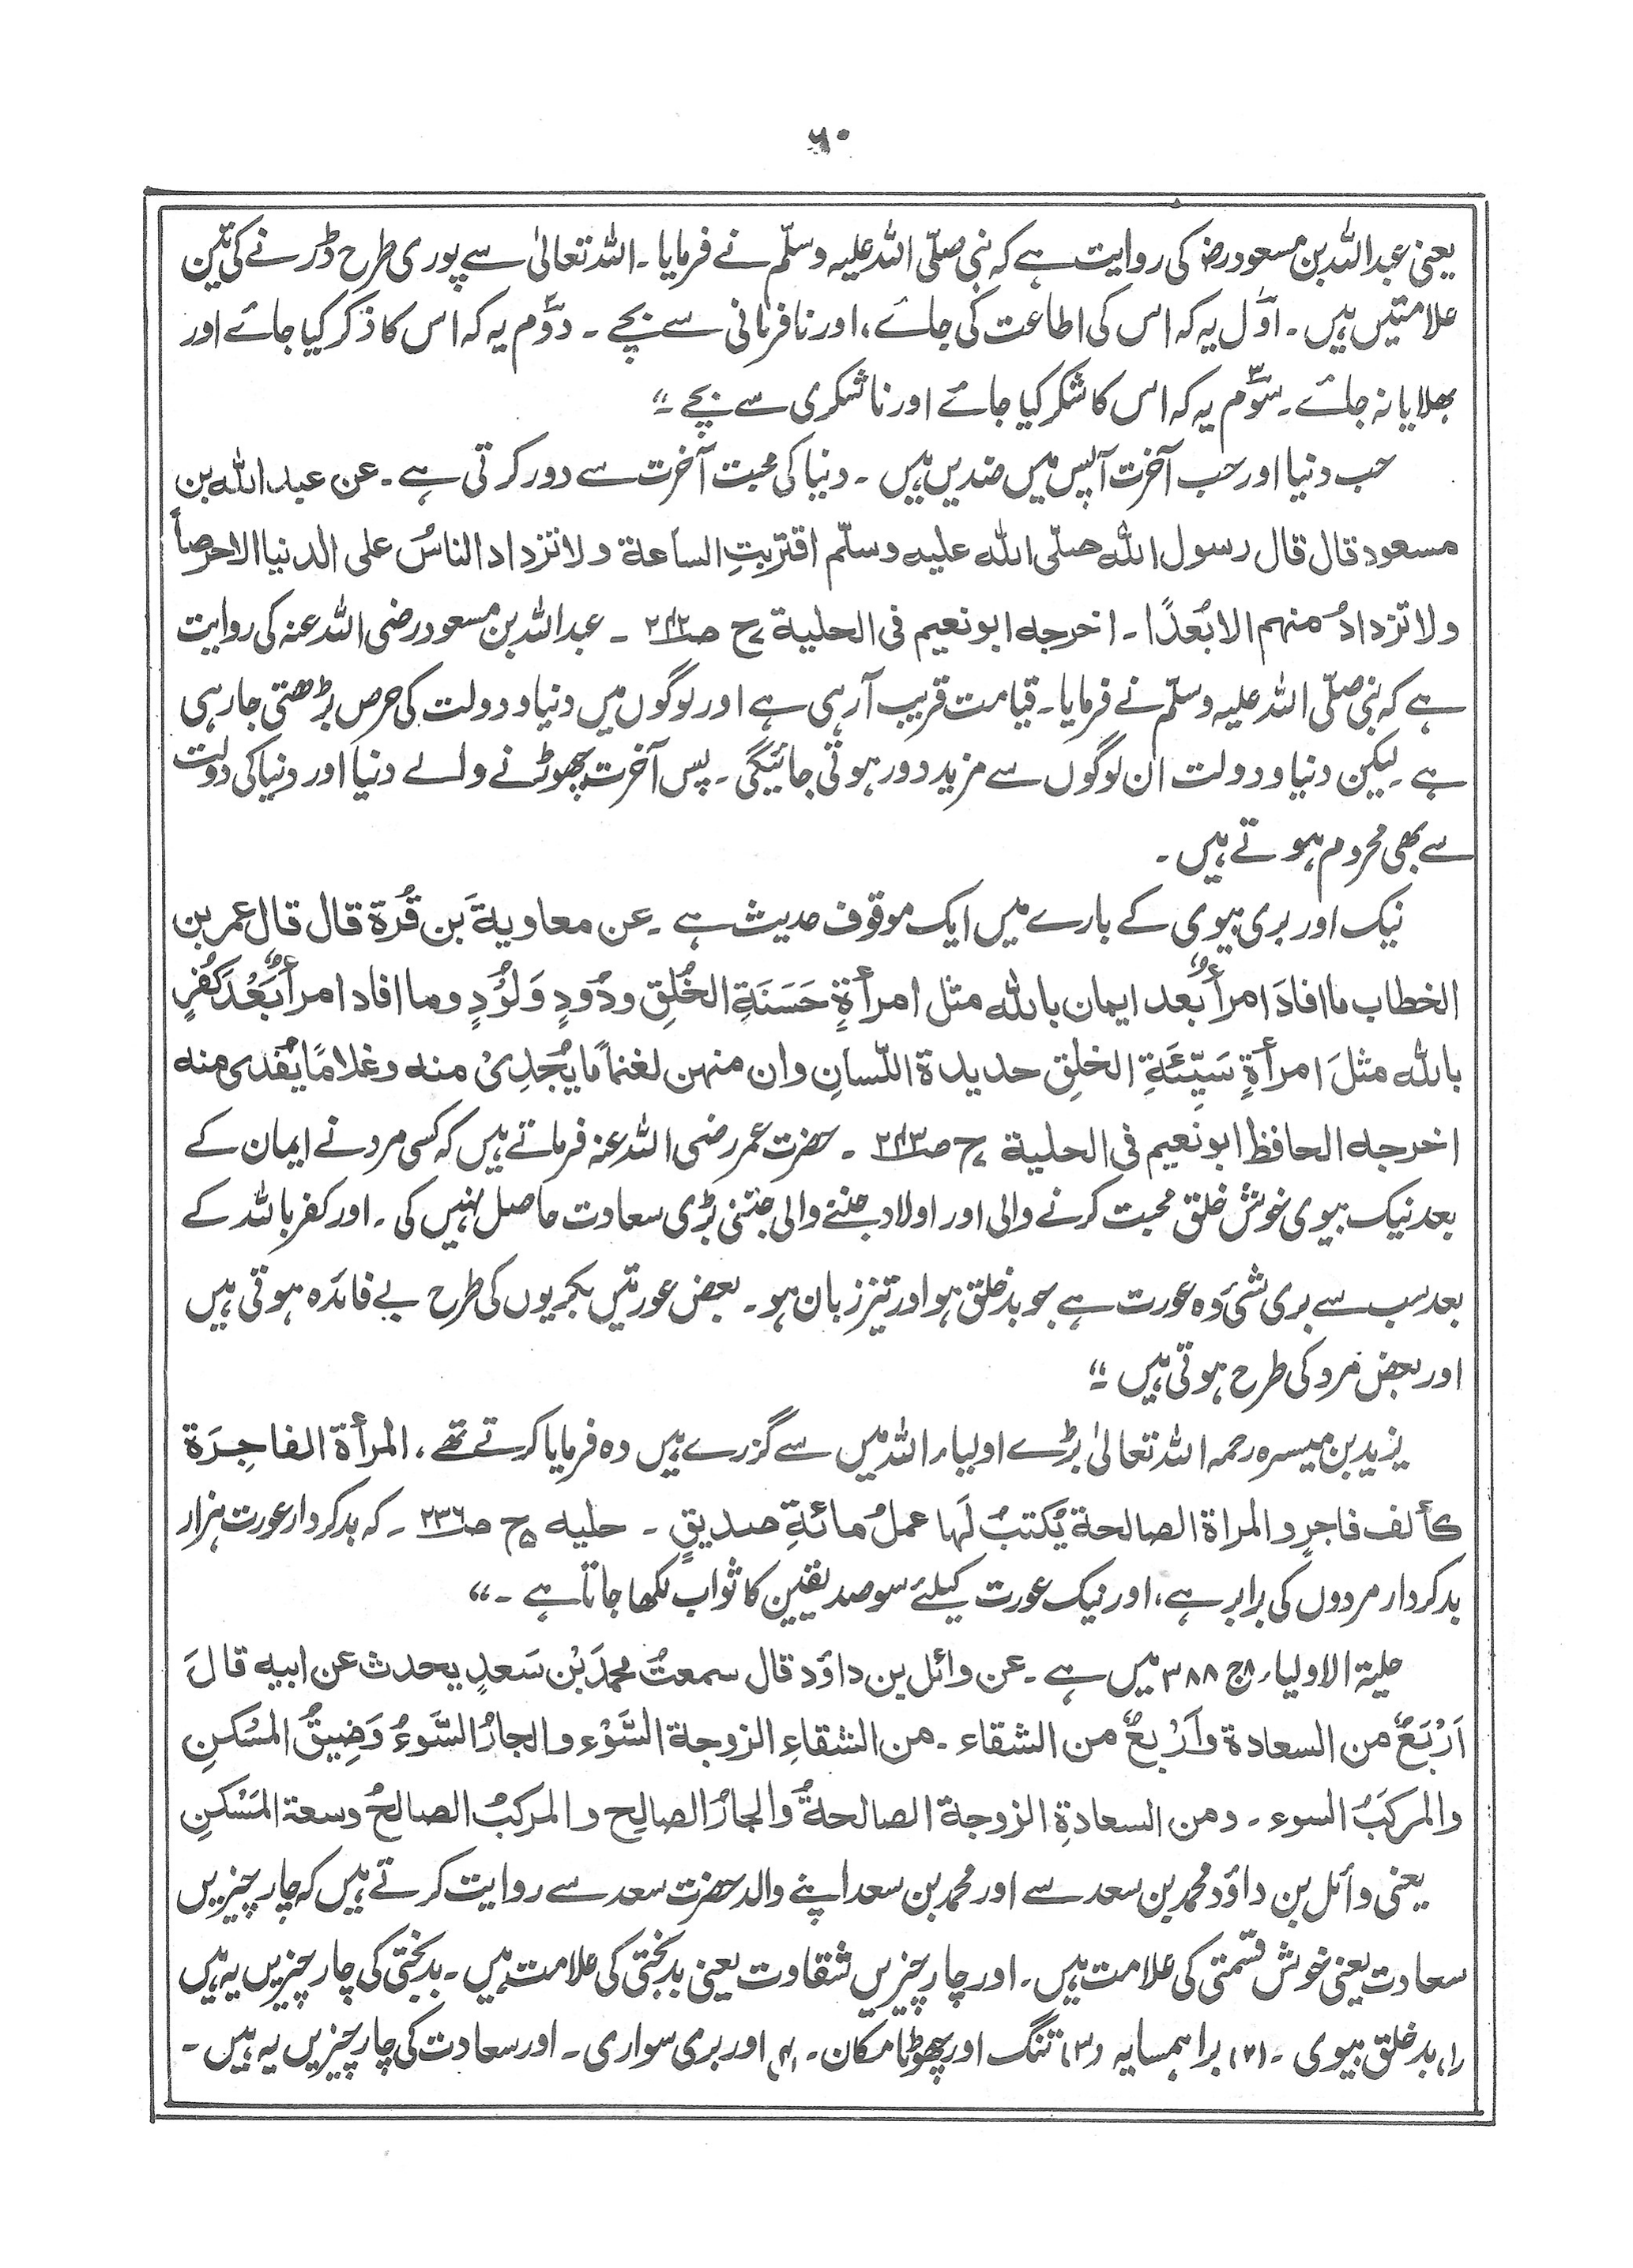 ۶۰
یعنی عبداللہ بن مسعود رضؓ کی روایت ہے کہ نبی صلّی اللہ علیہ وسلّم نے فرمایا۔ اللہ تعالیٰ سے پوری طرح ڈرنے کی تین
علامتیں ہیں۔ اوّل یہ کہ اس کی اطاعت کی جائے، اور نافرمانی سے بچے۔ دوّم یہ کہ اس کا ذکر کیا جائے اور
بھلایا نہ جائے۔ سوّم یہ کہ اس کا شکر کیا جائے اور ناشکری سے بچے۔“
حب دنیا اور حب آخرت آپس میں ضدیں ہیں۔ دنیا کی محبت آخرت سے دور کرتی ہے۔ عن عبد اللہ بن
مسعود قال قال رسول اللہ صلّی اللہ علیہ وسلّم اقتربتِ الساعة ولا تزداد الناسُ علی الدنیا الا حرصاً
ولا تزدادُ منهم الا بُعدًا۔ اخرجه ابو نعیم فی الحلیة ج صـ۲۴۲۔ عبداللہ بن مسعود رضی اللہ عنہ کی روایت
ہے کہ نبی صلّی اللہ علیہ وسلّم نے فرمایا۔ قیامت قریب آرہی ہے اور لوگوں میں دنیا و دولت کی حرص بڑھتی جارہی
ہے۔ لیکن دنیا و دولت ان لوگوں سے مزید دور ہوتی جائیگی۔ پس آخرت چھوڑنے والے دنیا اور دنیا کی دولت
سے بھی محروم ہوتے ہیں۔
نیک اور بری بیوی کے بارے میں ایک موقوف حدیث ہے۔ عن معاویةَ بن قُرة قال قال عمر بن
الخطاب ما افادَ امرأٌ بعد ایمان باللہ مثل امرأةٍ حَسَنَةِ الخُلِق ودُودٍ وَلُوُدٍ وما افاد امرأٌ بَعْدَ کُفرٍ
باللہ مثلَ امرأةٍ سَیِّئَةِ الخلِق حدیدة اللّسانِ وان منهن لغنمًا ما یُجْدِیْ منه وغلامًا یُفْدی منه
اخرجه الحافظ ابو نُعیم فی الحلیة ج صـ۲۴۳۔ حضرت عمر رضی اللہ عنہ فرماتے ہیں کہ کسی مرد نے ایمان کے
بعد نیک بیوی خوش خلق محبت کرنے والی اور اولاد جننے والی جتنی بڑی سعادت حاصل نہیں کی۔ اور کفر باللہ کے
بعد سب سے بری شئ وہ عورت ہے جو بدخلق ہو اور تیز زبان ہو۔ بعض عورتیں بکریوں کی طرح بے فائدہ ہوتی ہیں
اور بعض مرد کی طرح ہوتی ہیں۔“
یزید بن میسرہ رحمہ اللہ تعالیٰ بڑے اولیاء اللہ میں سے گزرے ہیں وہ فرمایا کرتے تھے، المرأة الفاجِرَة
کألف فاجرٍ والمراة الصالحة یُکتبُ لَها عملُ مائةِ صدیقٍ۔ حلیه ج صـ۲۳۶۔ کہ بدکردار عورت ہزار
بدکردار مردوں کی برابر ہے، اور نیک عورت کیلئے سو صدیقین کا ثواب لکھا جاتا ہے۔“
حلیة الاولیاء ج۸ ۳۸۸ میں ہے۔ عن وائل بن داوٗد قال سمعتُ محمدَ بْن سَعدٍ یحدث عن ابیه قالَ
اَرْبَعٌ من السعادة واَرْبعٌ من الشقاء۔ من الشقاءِ الزوجة السَّوْءِ والجارُ السَّوءُ وَضِیقُ المَسْکنِ
والمرکبُ السوء۔ ومن السعادةِ الزوجة الصالحةُ والجارُ الصالح والمرکبُ الصالحُ وسعة المَسْکنِ
یعنی وائل بن داوٗد محمد بن سعد سے اور محمد بن سعد اپنے والد حضرت سعد سے روایت کرتے ہیں کہ چار چیزیں
سعادت یعنی خوش قسمتی کی علامت ہیں۔ اور چار چیزیں شقاوت یعنی بدبختی کی علامت ہیں۔ بدبختی کی چار چیزیں یہ ہیں
(۱) بدخلق بیوی۔ (۲) برا ہمسایہ (۳) تنگ اور چھوٹا مکان۔ (۴) اور بری سواری۔ اور سعادت کی چار چیزیں یہ ہیں۔